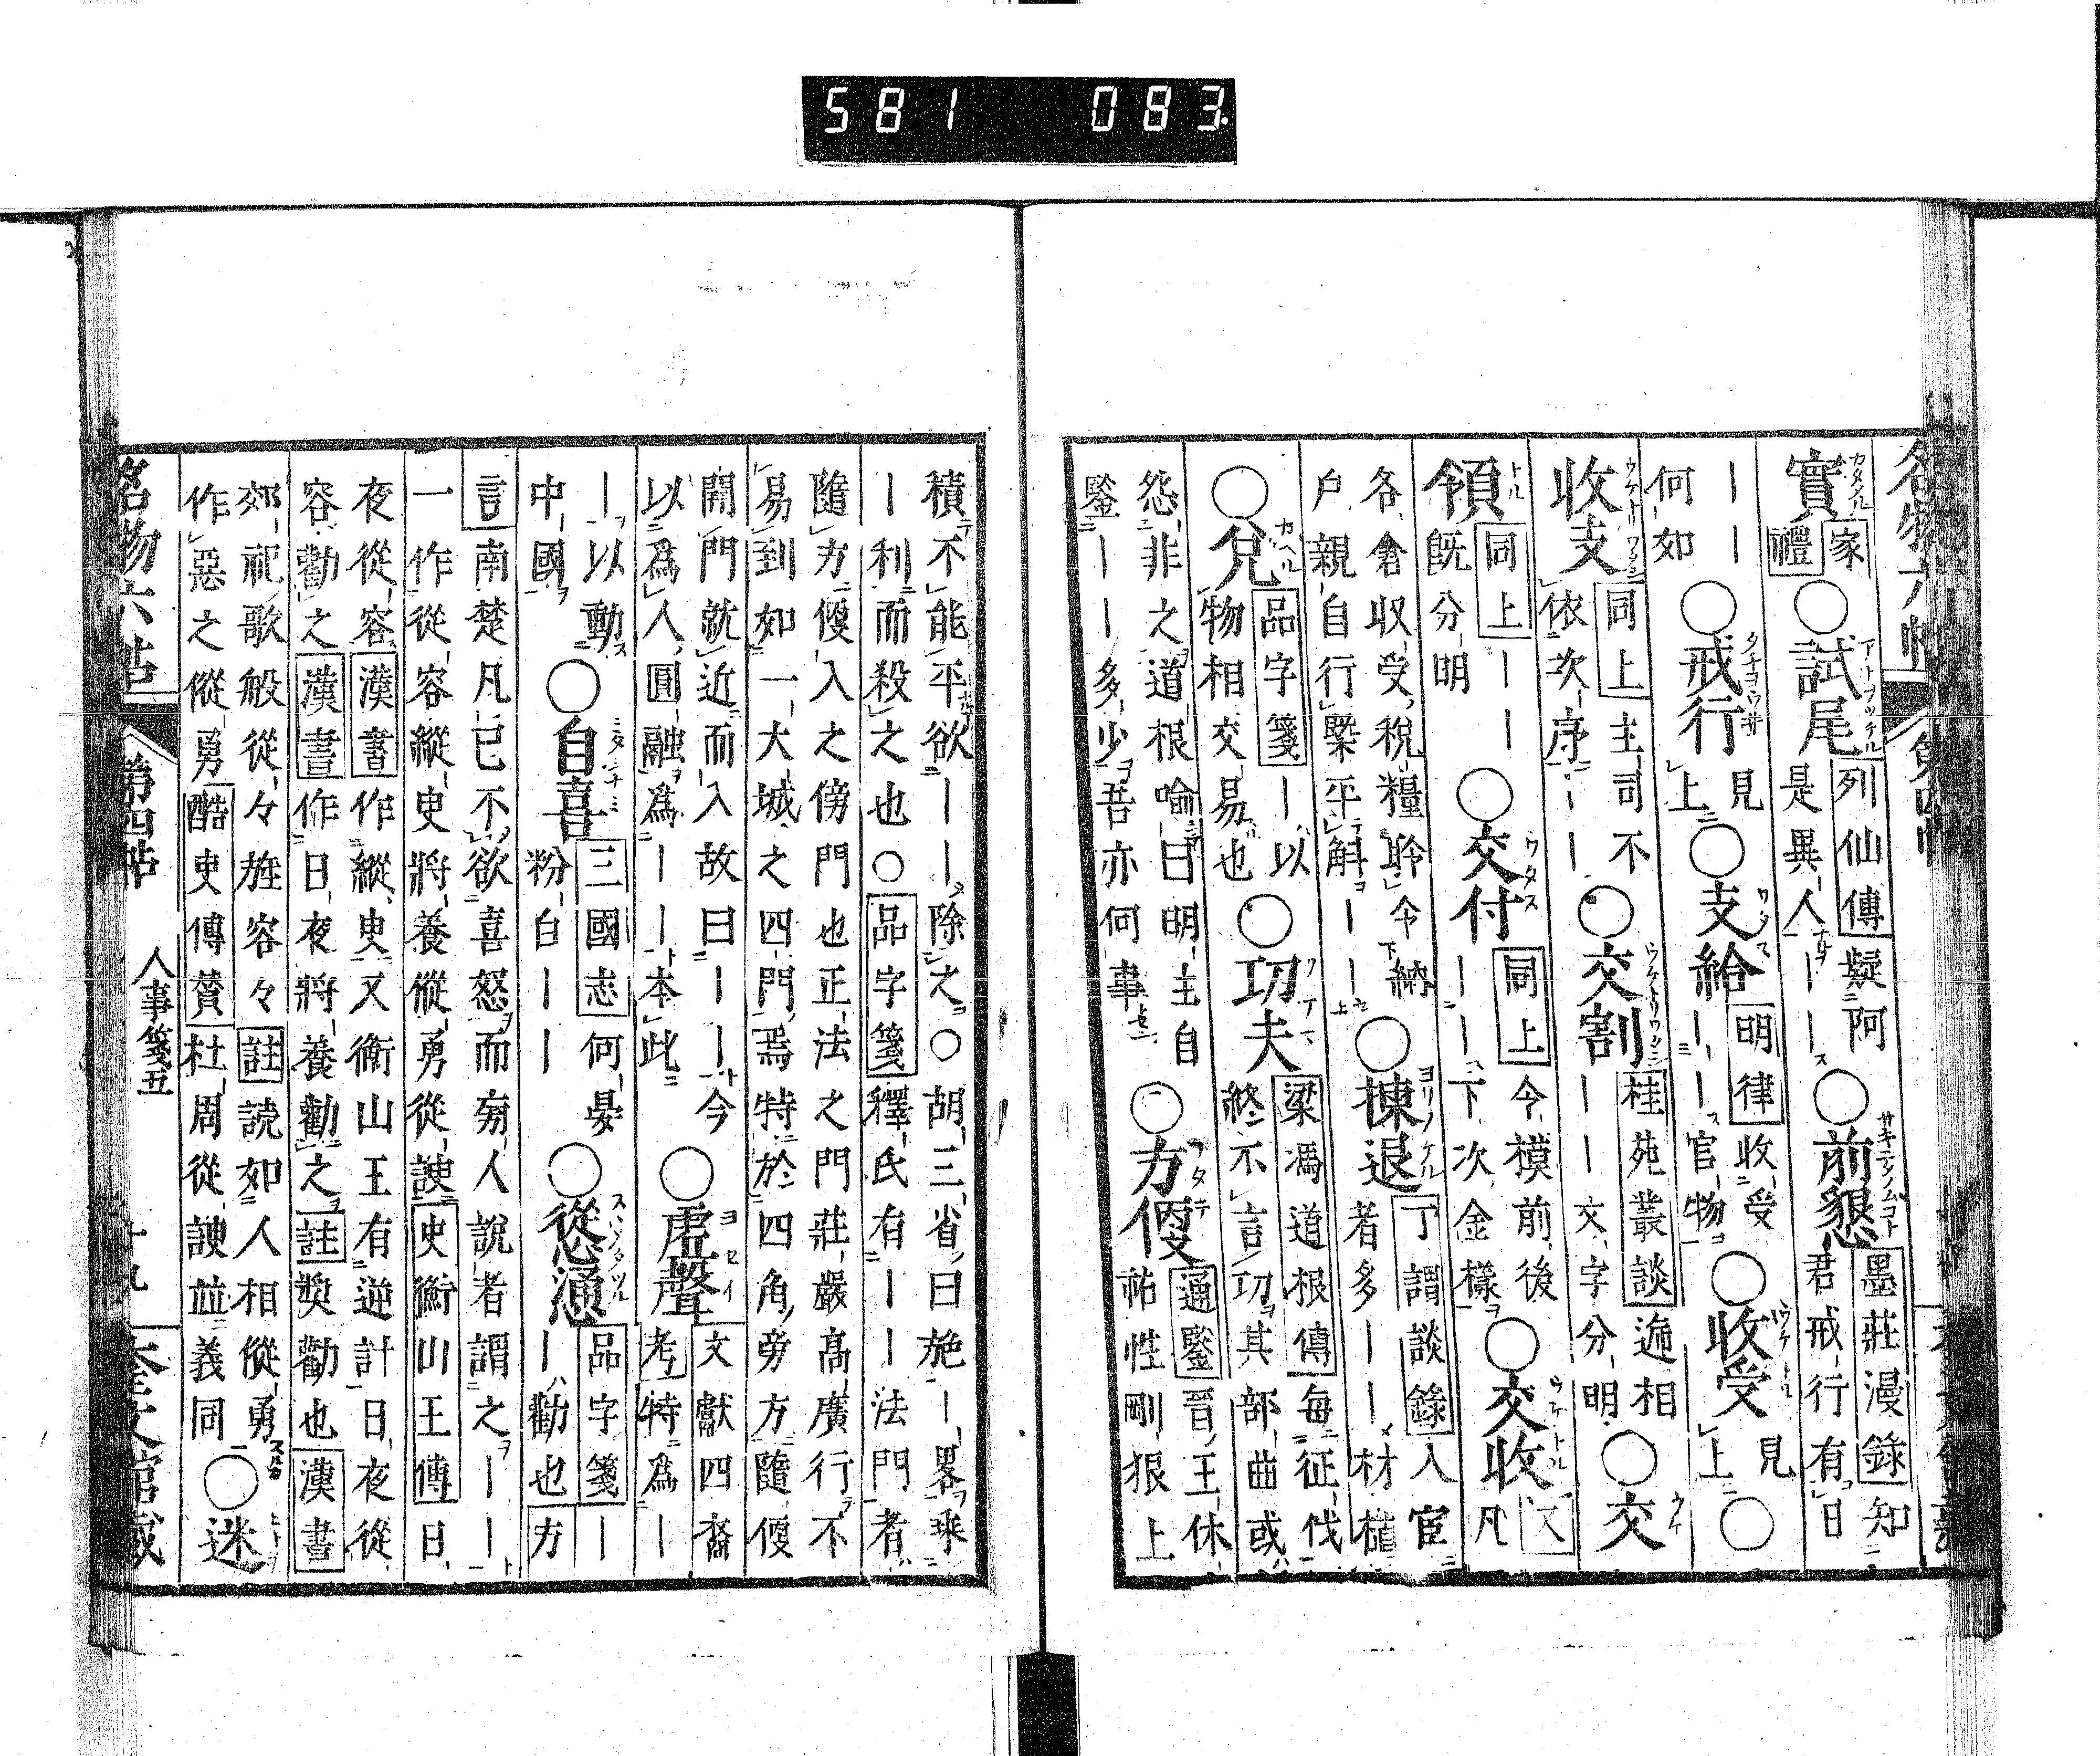 581 083
實 家禮 ○試尾 列仙傳 疑阿是異人—— ○前懇 墨莊漫錄 知君戒行有日
——何如 ○戒行 見上 ○支給 明律 收受——官物 ○收受 見上 ○
收支 同上 主司不依次序—— ○交割 桂苑叢談 迤相——文字分明 ○交
領 同上 ——既分明 ○交付 同上 今模前後——下次金樣 ○交收 文 凡
各倉收受稅糧聆今納戶親自行槩平斛—— ○揀退 丁謂談錄 入宦者多——材植
○兌 品字箋 —以物相交易也 ○功夫 梁馮道根傳 每征伐終不言功其部曲或
怨非之道根喻曰明主自鑒——多少吾亦何事 ○方便 通鑒 晋王休祐性剛狠上
積不能平欲——除之○胡三省曰施—畧乘
—利而殺之也○ 品字箋 釋氏有——法門者
隨方便入之傍門也正法之門莊嚴高廣行不
易到如一大城之四門焉特於四角旁方隨便
開門就近而入故曰——今 ○虛聲 文獻四裔考 特爲—
以爲人圓融爲——本此
—以動中國 ○自喜 三國志 何晏粉白—— ○慫慂 品字箋 ——勸也 方
言 南楚凡已不欲喜怒而旁人說者謂之——
一作從容縱臾將養慫勇從諛 史衡山王傳 日
夜從容 漢書 作縱臾又衡山王有逆計日夜從
容勸之 漢書 作日夜將養勸之 註 奬勸也 漢書
郊祀歌般從々旌容々 註 読如人相慫勇
作惡之慫勇 酷吏傳贊 杜周從諛並義同 ○迷
名物六帖 第四帖 人事箋五 十九 奎文館藏